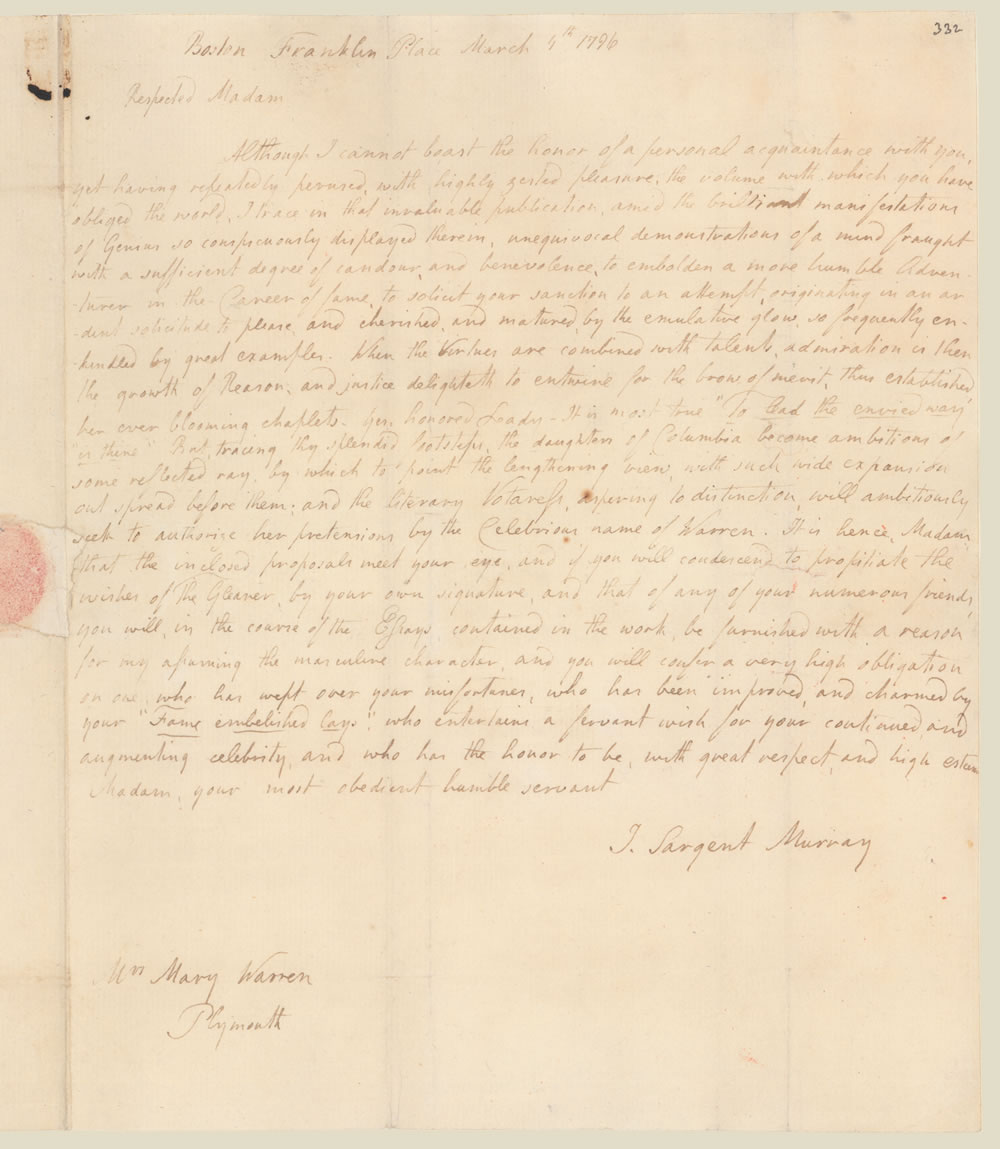 332
Boston Franklin Place March 4th 1796
Respected Madam
Although I cannot boast the honor of a personal acquaintance with you,
yet having repeatedly perused, with highly zested pleasure, the volume with which you have
obliged the world, I trace in that invaluable publication, amid the brilliant manifestations
of Genius so conspicuously displayed therein, unequivocal demonstrations of a mind fraught
with a sufficient degree of candour, and benevolence, to embolden a more humble Adven-
-turer in the Career of fame, to solicit your sanction to an attempt, originating in an ar-
-dent solicitude to please, and cherished, and matured, by the emulative glow, so frequently en-
-kindled by great examples. When the Virtues are combined with talents, admiration is then
the growth of Reason, and justice delighteth to entwine for the brow of merit, thus established
her ever blooming chaplets. Yes, honored Leady - It is most true "To lead the envied way
is thine" But, tracing thy splendid footsteps, the daughters of Columbia become ambitious of
some reflected ray, by which to point the lengthening view, with such wide expansion
out spread before them; and the literary Votaress, aspering to distinction, will ambitiously
seek to authorise her pretensions by the Celebrious name of Warren. It is hence, Madam,
that the inclosed proposals meet your eye, and if you will condescend to propitiate the
wishes of The Gleaner, by your own signature, and that of any of your numerous friends,
you will, in the course of the Essays, contained in the work, be furnished with a reason
for my assuming the masculine character, and you will confer a very high obligation
on one, who has wept over your misfortunes, who has been improved, and charmed by
your "Fame embelished Lays", who entertains a fervant wish for your continued and
augmenting celebrity, and who has the honor to be, with great respect, and high esteem
Madam, your most obedient humble servant
J. Sargent Murray
Mrs Mary Warren
Plymouth